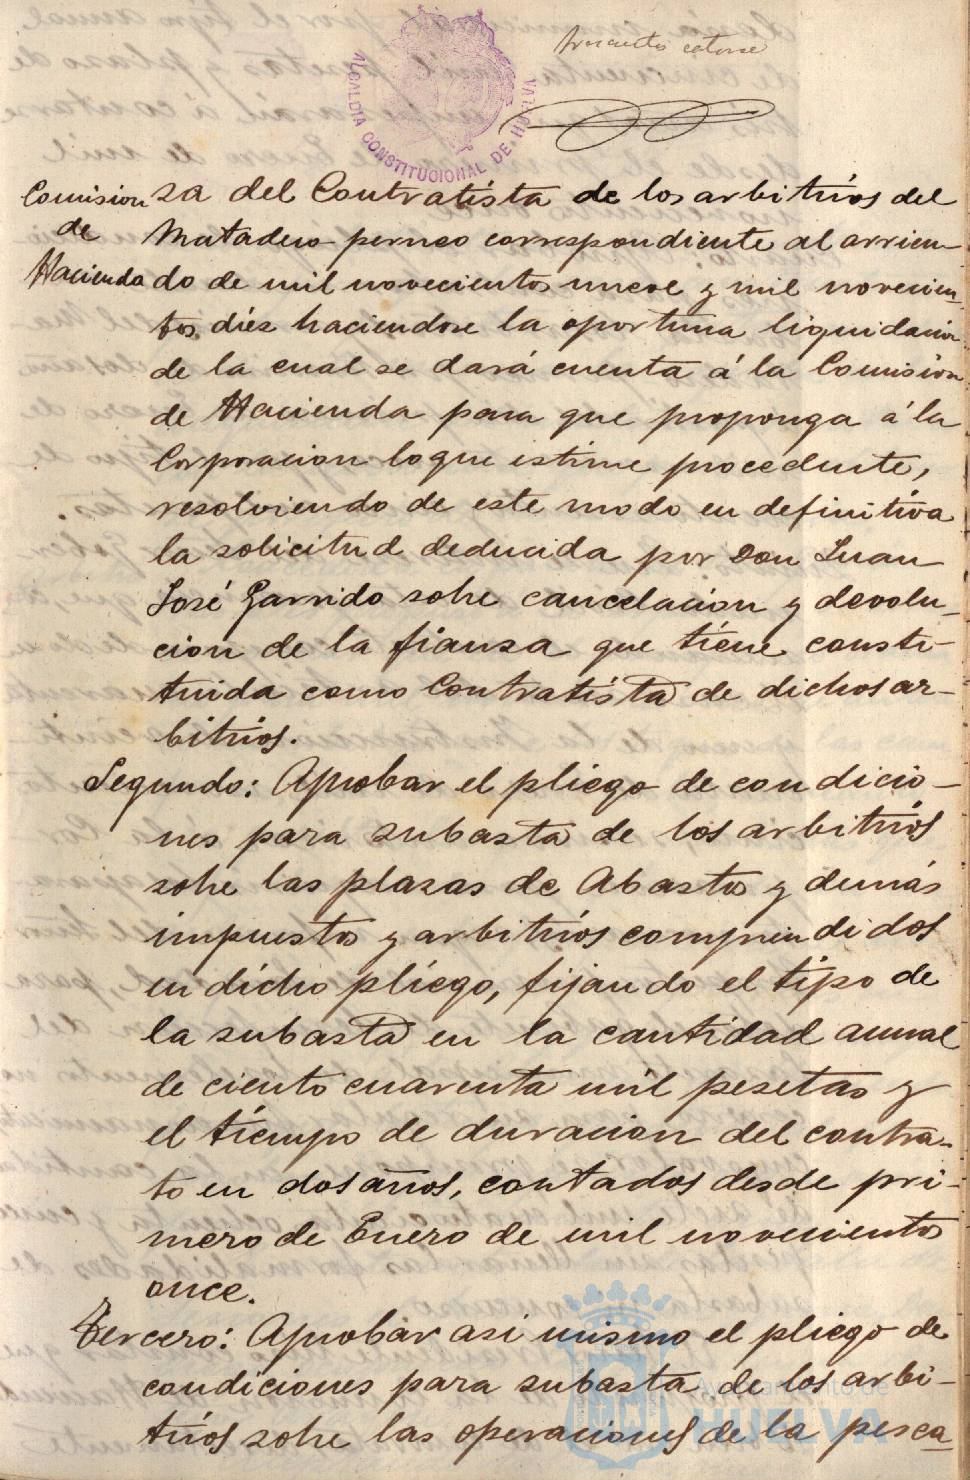 ALCALDIA CONSTITUCIONAL DE HUELVA
catorce
Comision
de
Hacienda
za del Contratista de los arbitrios del
Matadero perneo correspondiente al arrien-
do de mil novecientos nueve y mil novecien-
tos diéz haciendose la oportuna liquidacion
de la cual se dará cuenta á la Comision
de Hacienda para que proponga á la
Corporacion lo que estime procedente,
resolviendo de este modo en definitiva
la solicitud deducida por Don Juan
José Garrido sobre cancelacion y devolu-
cion de la fianza que tiene consti-
tuida como Contratista de dichos ar-
bitrios.
Segundo: Aprobar el pliego de condicio-
nes para subasta de los arbitrios
sobre las plazas de Abastos y demás
impuestos y arbitrios comprendidos
en dicho pliego, fijando el tipo de
la subasta en la cantidad anual
de ciento cuarenta mil pesetas y
el tiempo de duracion del contra-
to en dos años, contados desde pri-
mero de Enero de mil novecientos
once.
Tercero: Aprobar asi mismo el pliego de
condiciones para subasta de los arbi-
trios sobre las operaciones de la pesca
Ayuntamiento de
HUELVA